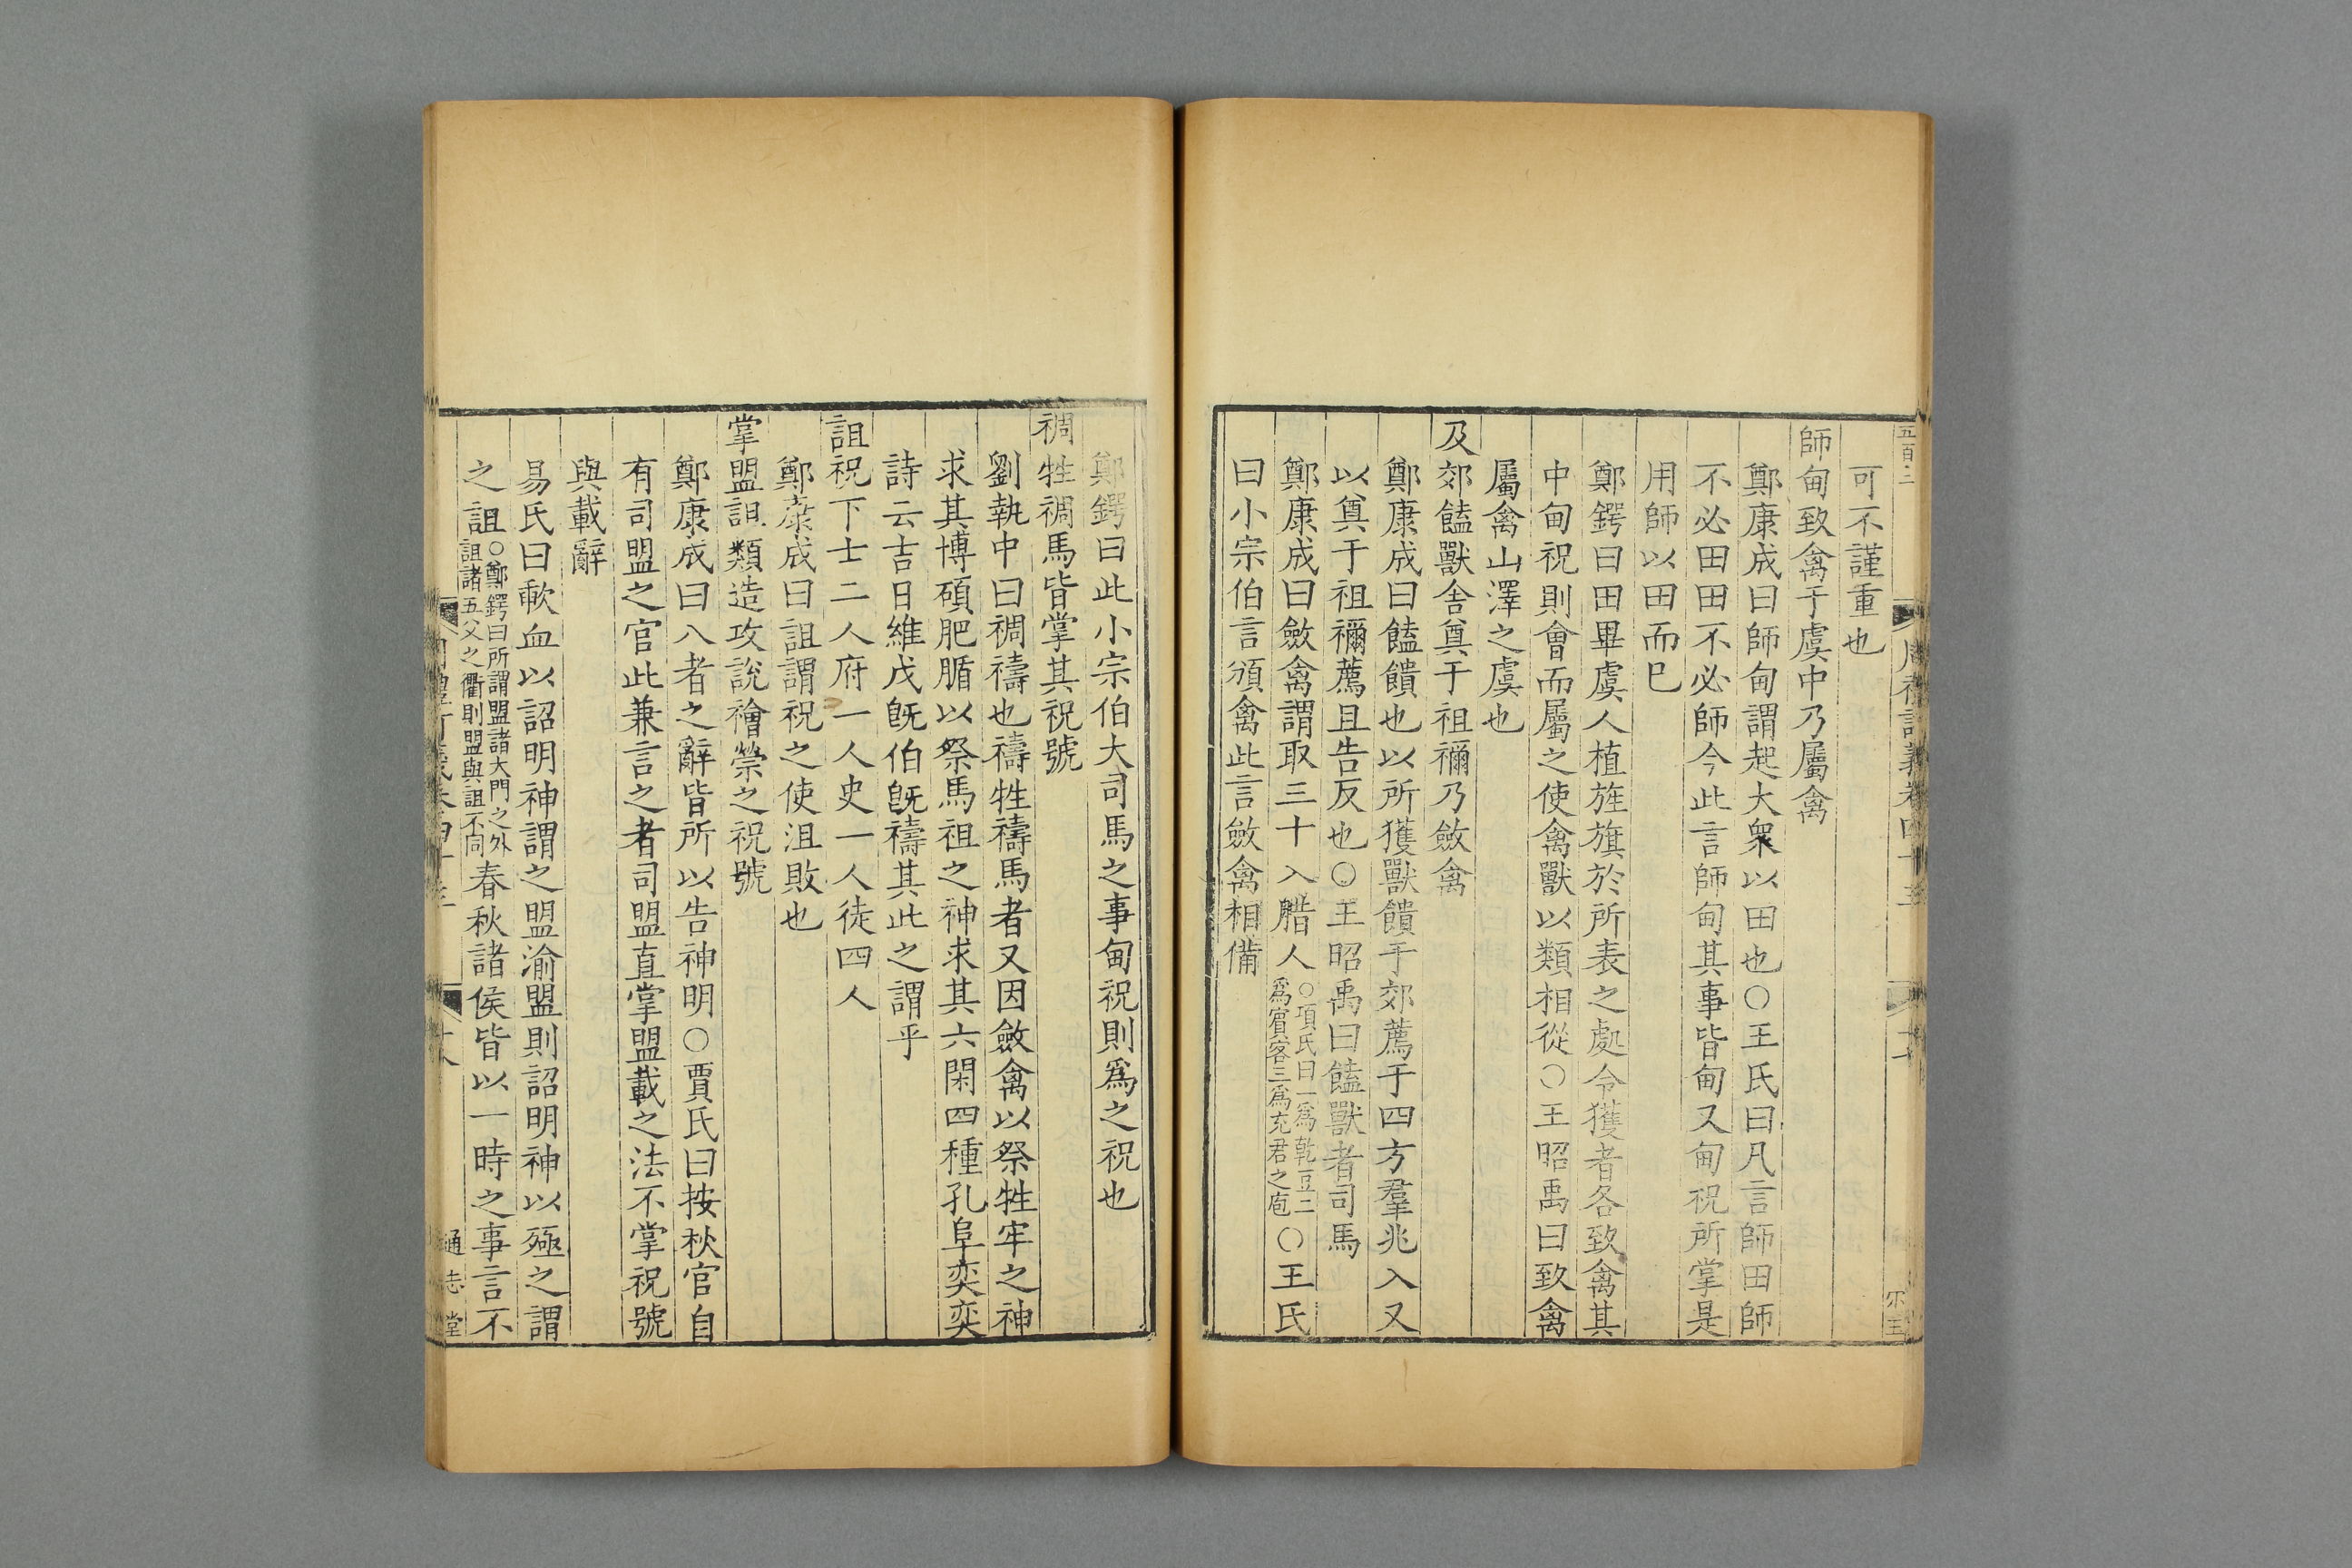 五百二
可不謹重也
師甸致禽于虞中乃屬禽
鄭康成曰師甸謂起大衆以田也○王氏曰凡言師田師
不必田田不必師今此言師甸其事皆甸又甸祝所掌是
用師以田而已
鄭鍔曰田畢虞人植旌旗於所表之處令獲者各致禽其
中甸祝則會而屬之使禽獸以類相從○王昭禹曰致禽
屬禽山澤之虞也
及郊饁獸舍奠于祖禰乃斂禽
鄭康成曰饁饋也以所獲獸饋于郊薦于四方羣兆入又
以奠于祖禰薦且告反也○王昭禹曰饁獸者司馬
鄭康成曰斂禽謂取三十入腊人○項氏曰一爲乾豆二爲賓客三爲充君之庖○王氏
曰小宗伯言頒禽此言斂禽相備
鄭鍔曰此小宗伯大司馬之事甸祝則爲之祝也
禂牲禂馬皆掌其祝號
劉執中曰禂禱也禱牲禱馬者又因斂禽以祭牲牢之神
求其博碩肥腯以祭馬祖之神求其六閑四種孔阜奕奕
詩云吉日維戊旣伯旣禱其此之謂乎
詛祝下士二人府一人史一人徒四人
鄭康成曰詛謂祝之使沮敗也
掌盟詛類造攻說禬禜之祝號
鄭康成曰八者之辭皆所以告神明○賈氏曰按秋官自
有司盟之官此兼言之者司盟直掌盟載之法不掌祝號
與載辭
易氏曰歃血以詔明神謂之盟渝盟則詔明神以殛之謂
之詛○鄭鍔曰所謂盟諸大門之外詛諸五父之衢則盟與詛不同春秋諸侯皆以一時之事言不
通志堂